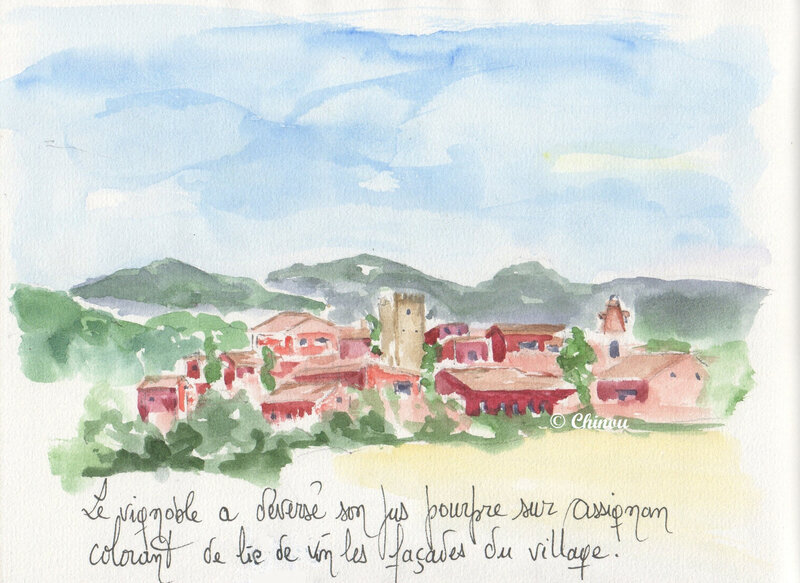 © Chinou
Le vignoble a déversé son jus pourpre sur assignan
colorant de lie de vin les façades du village.